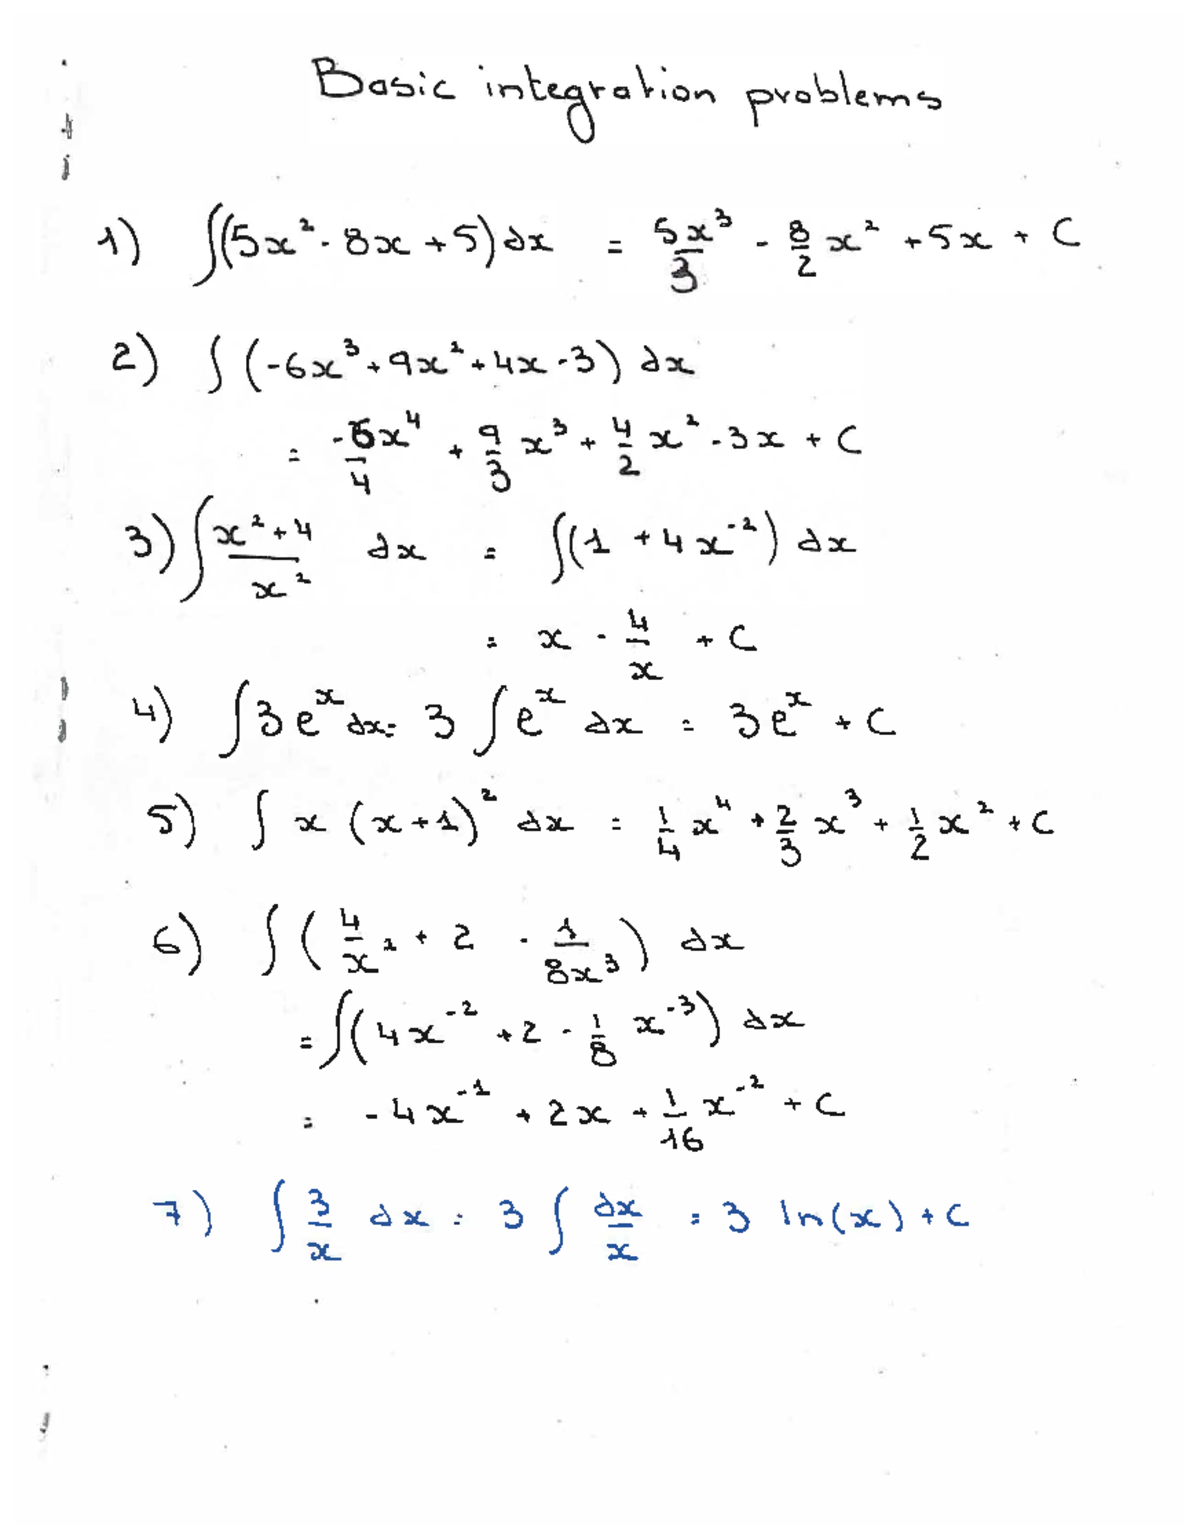 Basic integration problems
1) ∫(5x² - 8x + 5) dx = 5x³/3 - 8/2 x² + 5x + C
2) ∫ (-6x³ + 9x² + 4x - 3) dx
= -6x⁴/4 + 9/3 x³ + 4/2 x² - 3x + C
3) ∫ (x² + 4)/x² dx = ∫(1 + 4x⁻²) dx
= x - 4/x + C
4) ∫ 3eˣ dx = 3 ∫ eˣ dx = 3eˣ + C
5) ∫ x (x+1)² dx = 1/4 x⁴ + 2/3 x³ + 1/2 x² + C
6) ∫ ( 4/x² + 2 - 1/8x³ ) dx
= ∫(4x⁻² + 2 - 1/8 x⁻³) dx
= -4x⁻¹ + 2x + 1/16 x⁻² + C
7) ∫ 3/x dx = 3 ∫ dx/x = 3 ln(x) + C